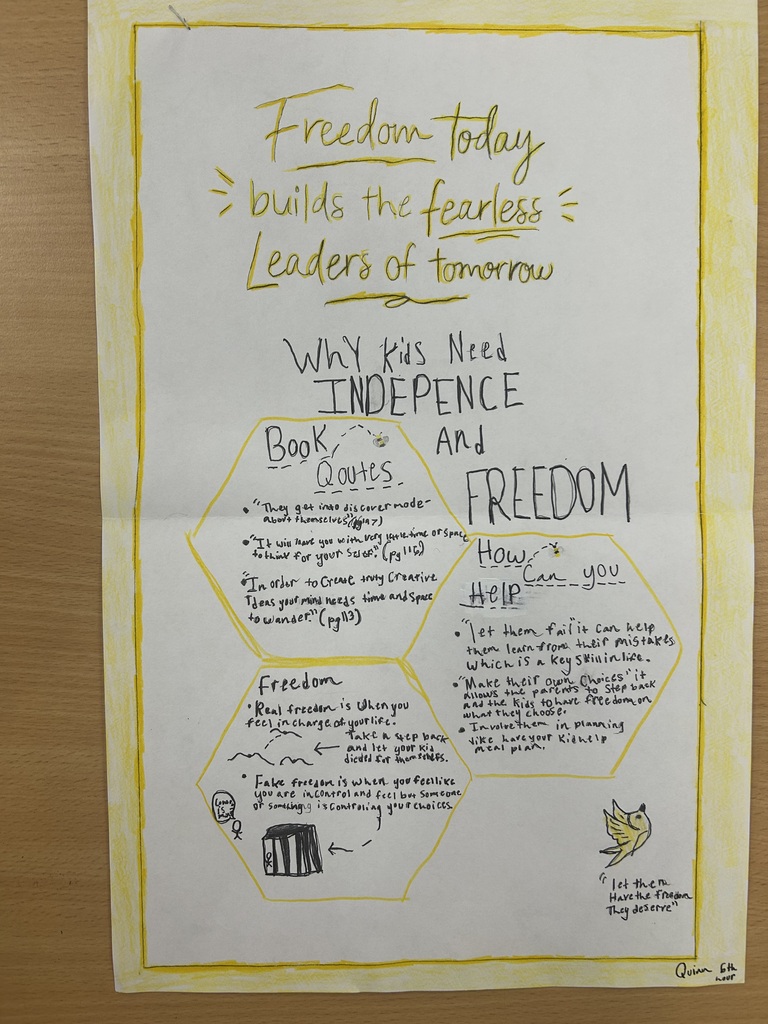 Freedom today
builds the fearless
Leaders of tomorrow
WhY Kids Need
INDEPENCE
And
FREEDOM
Book
Qoutes
• "They get into discover mode-
about themselves"
• "It will leave you with very little time or space
to think for your self." (pg 116)
• "In order to Create truly Creative
Ideas your mind needs time and space
to wander." (pg 113)
How
Can you
Help
• "let them fail" it can help
them learn from their mistakes
which is a key skill in life.
• "Make their own Choices" it
allows the parents to step back
and the kids to have freedom on
what they choose.
• Involve them in planning
like have your kid help
meal plan.
Freedom
• Real freedom is when you
feel in charge of your life.
Take a step back
and let your kid
for themselfs.
• Fake freedom is when you feel like
you are in control and feel but someone
or something is controling your choices.
"let them
Have the freedom
They deserve"
Quinn 6th
hour